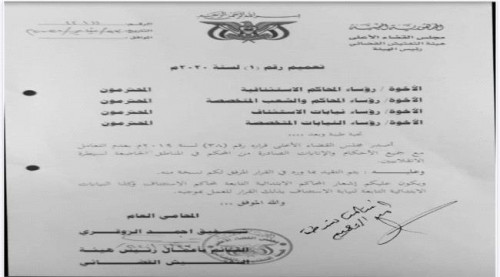 بسم الله الرحمن الرحيم
الجمهورية اليمنية
مجلس القضاء الأعلى
هيئة التفتيش القضائي
رئيس الهيئة
تعميم رقم (١) لسنة ٢٠٢٠م
الأخوة/ رؤساء المحاكم الاستئنافية المحترمون
الأخوة/ رؤساء المحاكم والشعب المتخصصة المحترمون
الأخوة/ رؤساء نيابات الاستئناف المحترمون
الأخوة/ رؤساء النيابات المتخصصة المحترمون
تحية طيبة وبعد ....
أصدر مجلس القضاء الأعلى قراره رقم (٣٨) لسنة ٢٠١٩م بعدم التعامل
مع جميع الأحكام والإنابات الصادرة من المحاكم في المناطق الخاضعة لسيطرة
الانقلابيين.
وعليه: يتم التقيد بما ورد في القرار المرفق لكم نسخة منه.
ويكون عليكم إشعار المحاكم الابتدائية التابعة لمحاكم الاستئناف وكذا النيابات
الابتدائية التابعة لنيابة الاستئناف بذلك القرار للعمل بموجبه.
والله الموفق ...
المحامي العام
شفيق احمد الزوقري
القائم بأعمال رئيس هيئة
التفتيش القضائي